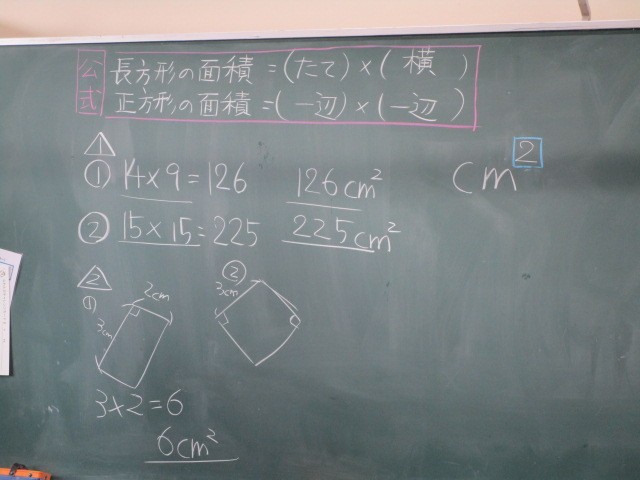 公式
長方形の面積=(たて)×(横)
正方形の面積=(一辺)×(一辺)
1
① 14×9=126 126cm²
② 15×15=225 225cm²
cm²
2
① 2cm
3cm
② 3cm
3×2=6
6cm²